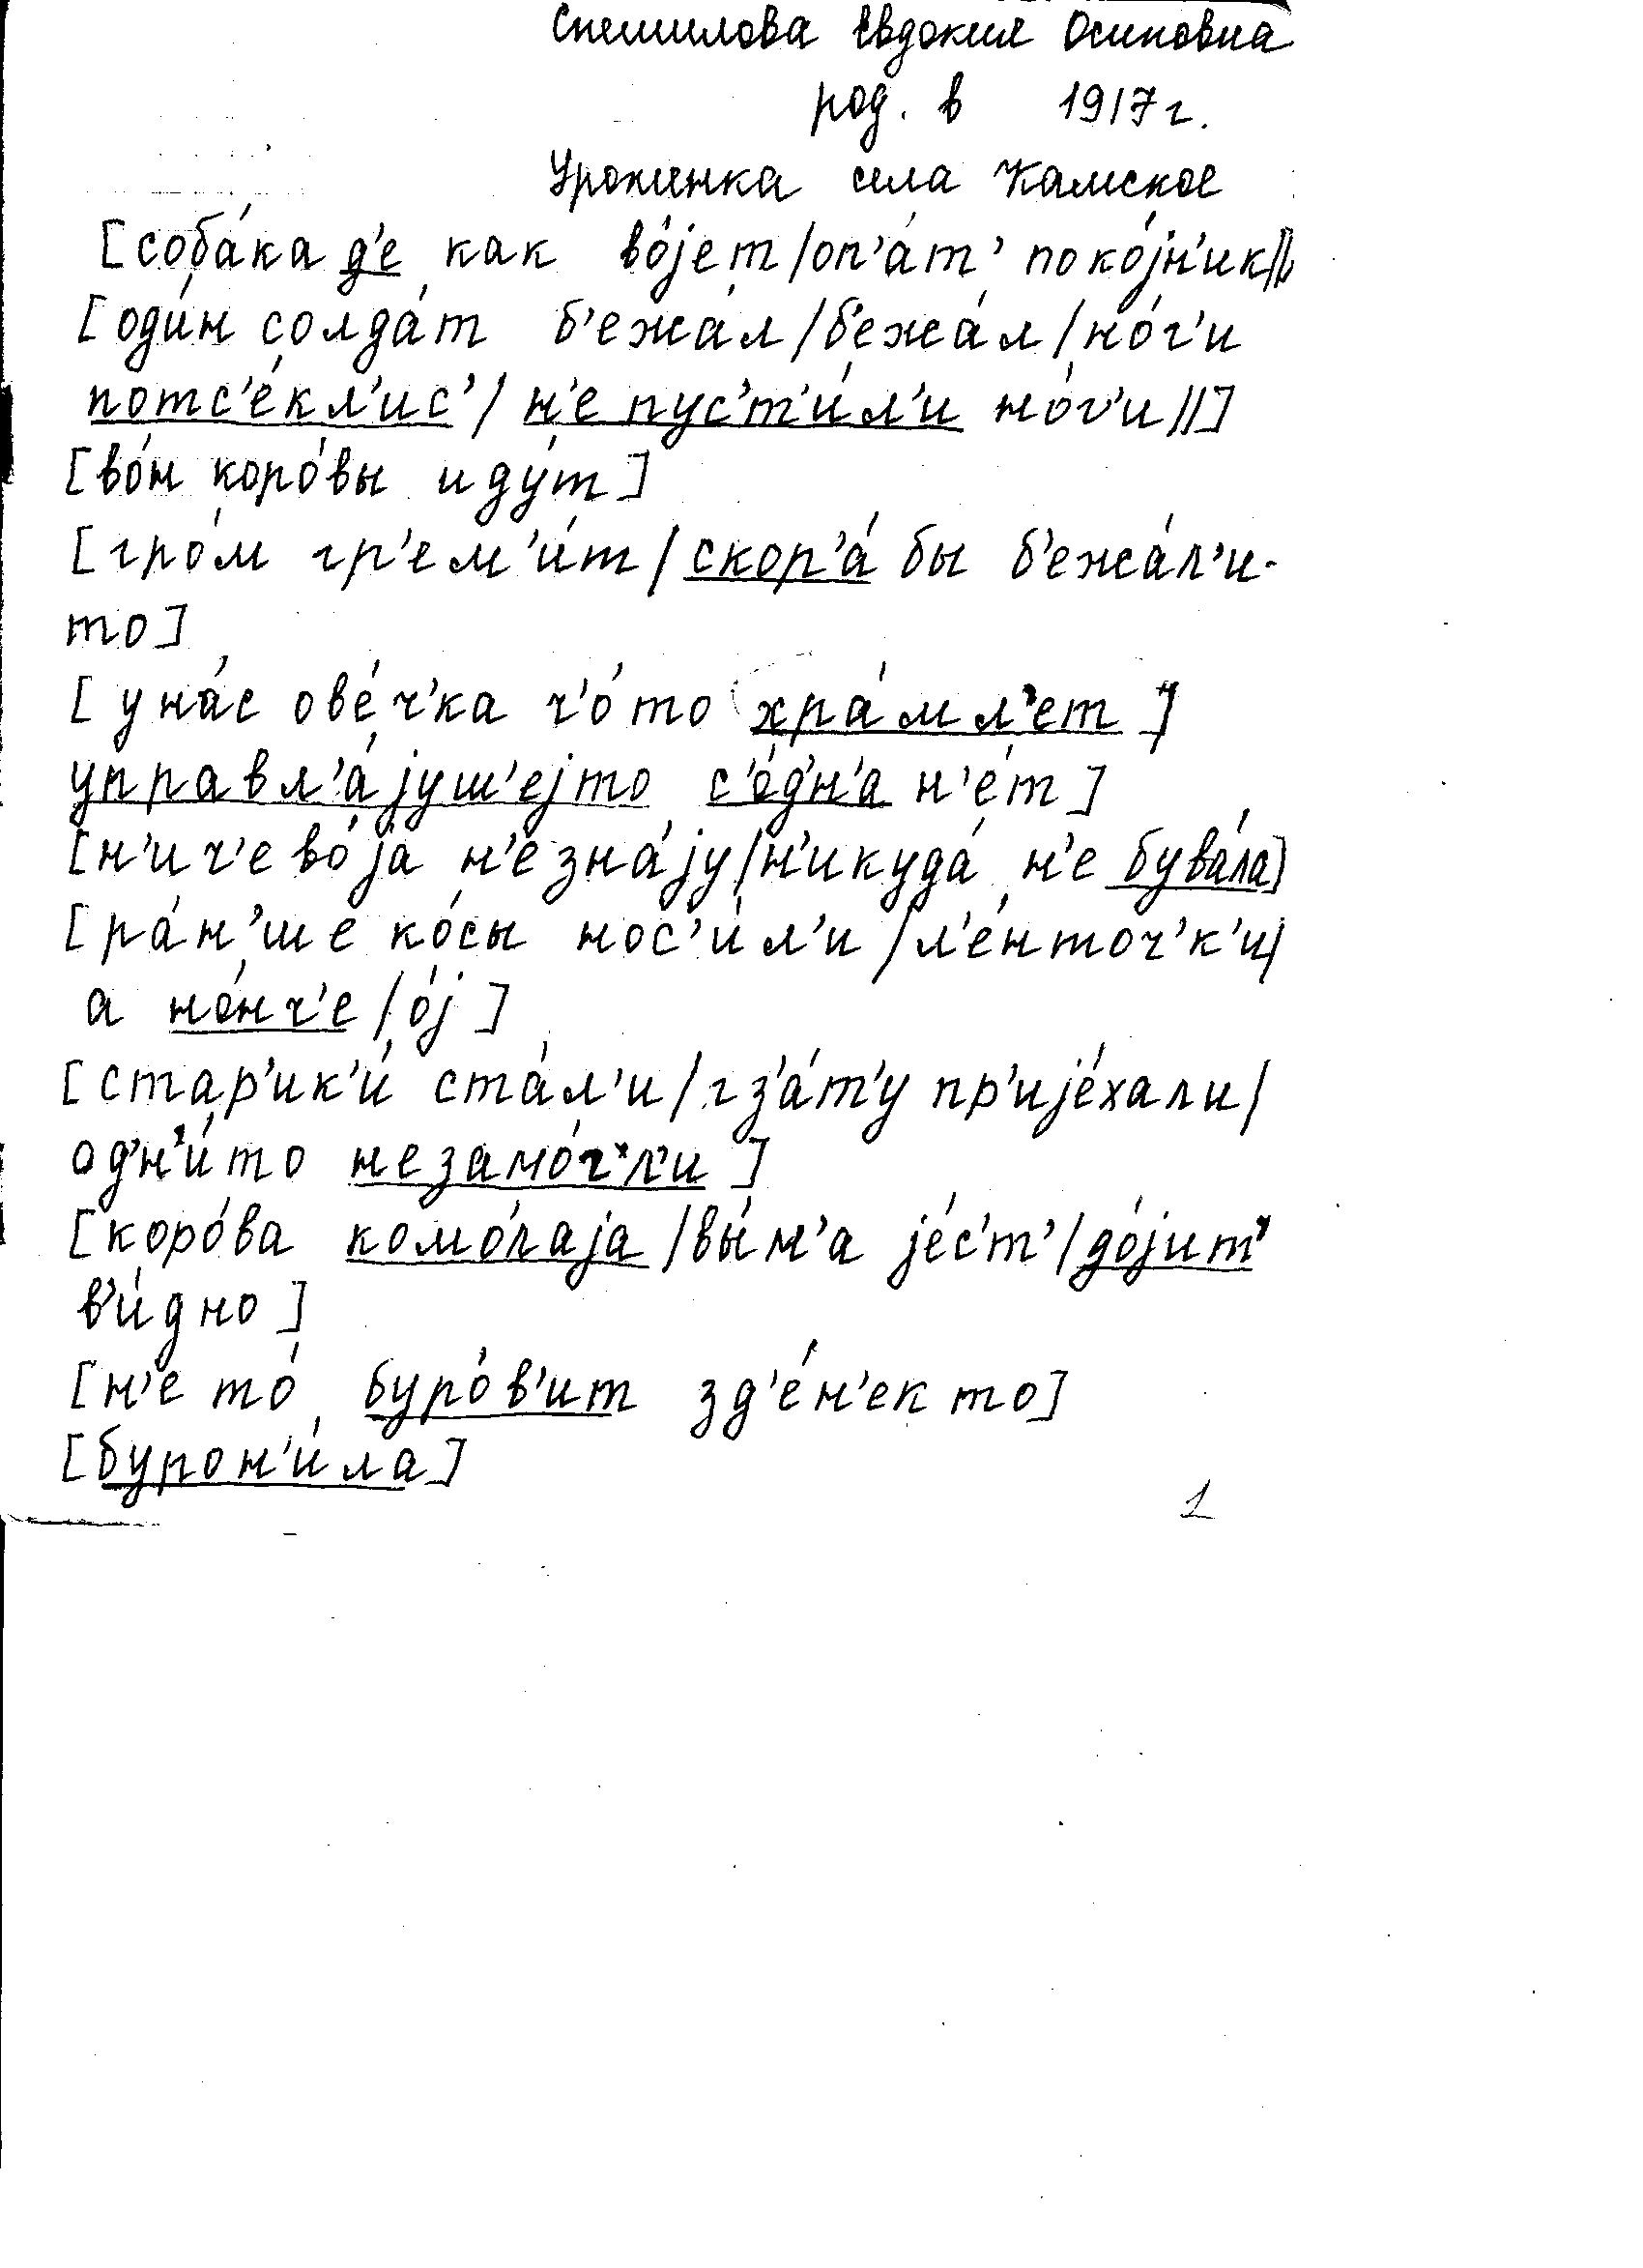 Спешилова Евдокия Осиповна
род. в 1917 г.
Уроженка села Камское
[соба́ка д'е как во́jет/оп'а́т' поко́jн'ик//]
[оди́н солда́т б'ежа́л/б'ежа́л/но́г'и
потс'е́кл'ис'/н'е пус'т'и́л'и но́г'и//]
[во́н коро́вы иду́т]
[гро́м гр'ем'и́т/скор'а́ бы б'ежа́л'и-
то]
[у на́с ове́ч'ка ч'о́то хра́мл'ет]
управл'а́jуш'еjто с'о́д'н'а н'е́т]
[н'ич'ево́jа н'е зна́jу/н'икуда́ н'е бува́ла]
[ра́н'ше ко́сы нос'и́л'и/л'е́нточ'к'и/
а но́нч'е/о́j]
[стар'ик'и́ ста́л'и/г з'а́т'у пр'иjе́хали/
од'н'и́то незамо́г'л'и]
[коро́ва комо́лаjа/вы́м'а jе́с'т'/до́jит'
в'и́дно]
[н'е то́ буро́в'ит зд'е́н'ек то]
[бурон'и́ла]
1